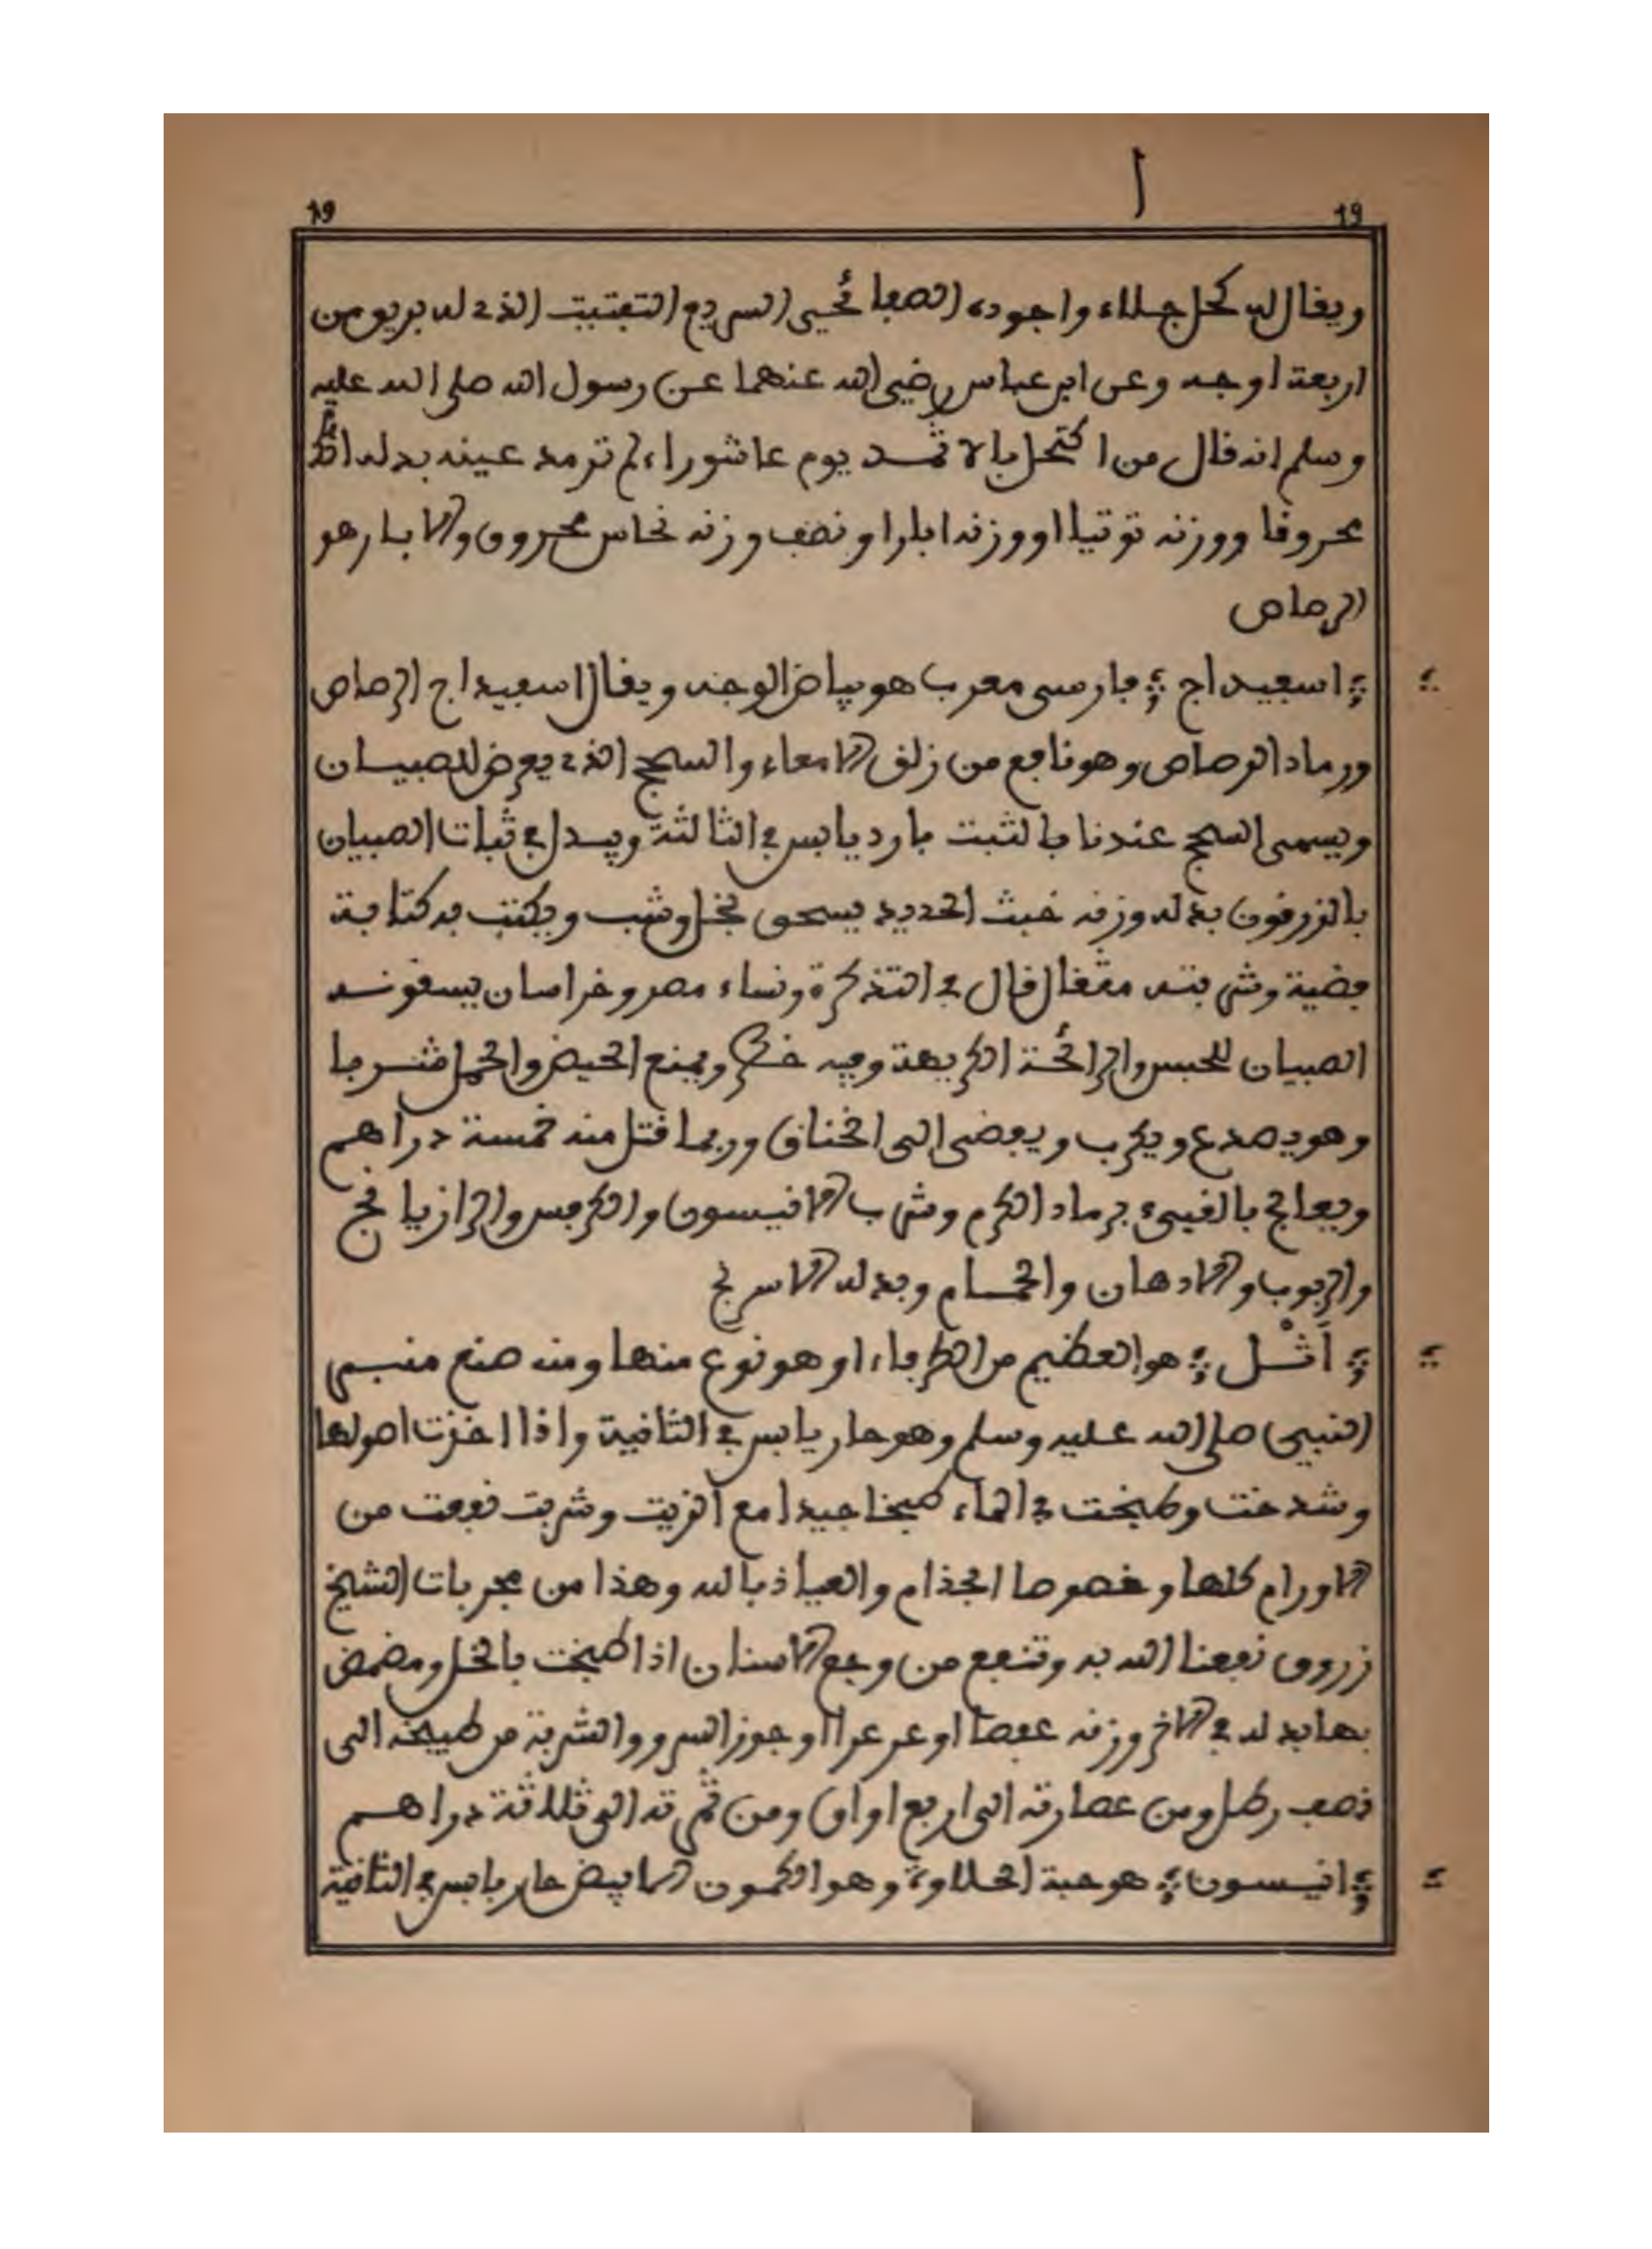 19 19
ويقال له كحل جلاء واجوده الصفائحي السريع التفتيت الذي له بريق من
اربعة اوجه وعن ابن عباس رضي الله عنهما عن رسول الله صلى الله عليه
وسلم انه قال من اكتحل بالاثمد يوم عاشوراء لم ترمد عينه بدله
محروقا ووزنه توتيا او وزنه ابارا ونصف وزنه نحاس محروق والابار هو
الرصاص
اسفيداج فارسي معرب هو بياض الوجه ويقال اسفيداج الرصاص
ورماد الرصاص وهو نافع من زلق الامعاء والسحج الذي يعرض للصبيان
ويسمى السحج عندنا بالثبت بارد يابس في الثالثة ويبدل في ثبات الصبيان
بالزرقون بدله وزنه خبث الحديد يسحق بخل وشب ويكتب به كتابة
فضية وشربته مثقال قال في التذكرة ونساء مصر وخراسان يسقونه
الصبيان للحبس والرائحة الكريهة وفيه خطر ويمنع الحيض والحمل شربا
وهو يصدع ويكرب ويفضي الى الخناق وربما قتل منه خمسة دراهم
ويعالج بالقيء برماد الكرم وشرب الانيسون والكرفس والرازيانج
والربوب والادهان والحمام وبدله الاسرنج
اَثْل هو العظيم من الطرفاء او هو نوع منها ومنه صنع منبر
النبي صلى الله عليه وسلم وهو حار يابس في الثانية واذا اخذت اصولها
وشدخت وطبخت في الماء طبخا جيدا مع الزيت وشربت نفعت من
الاورام كلها وخصوصا الجذام والعياذ بالله وهذا من مجربات الشيخ
زروق نفعنا الله به وتنفع من وجع الاسنان اذا طبخت بالخل ومضمض
بها بدله في الاخر وزنه عفصا او عرعرا او جوز السرو والشربة من طبيخه الى
نصف رطل ومن عصارته الى اربع اواق ومن ثمرته الى ثلاثة دراهم
انيسون هو حبة الحلاوة وهو الكمون الابيض حار يابس في الثانية